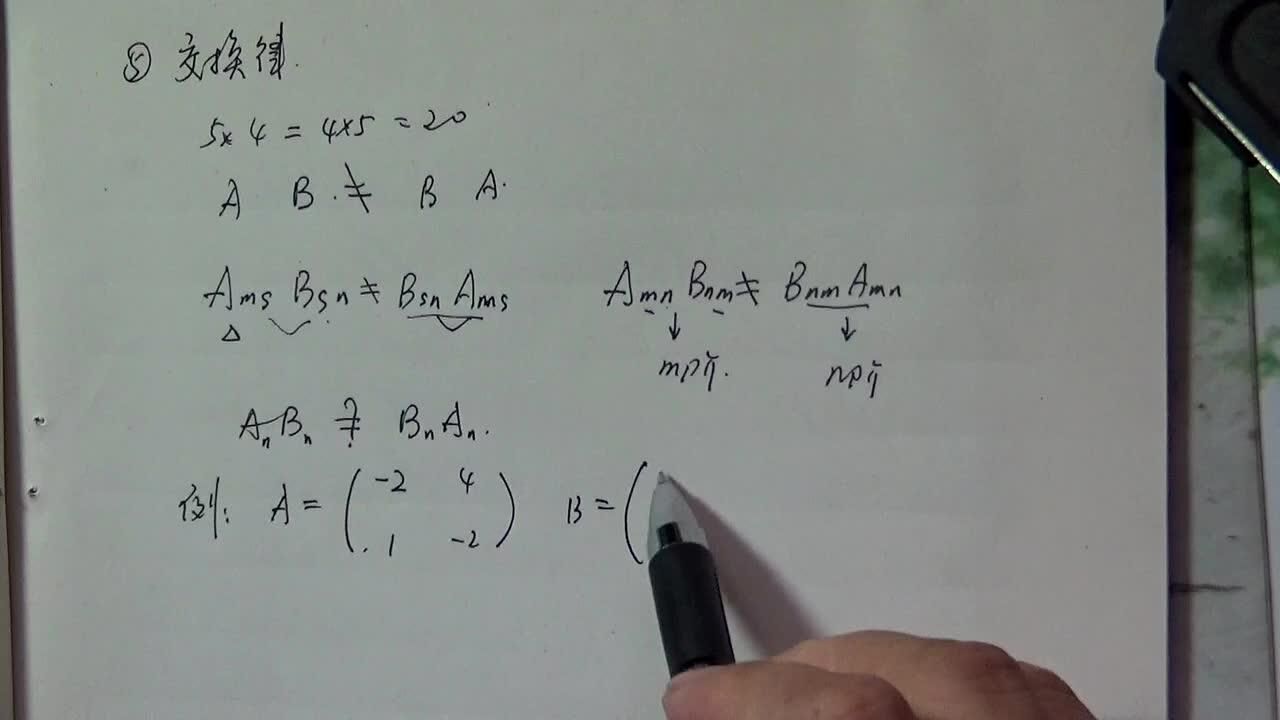 ⑤ 交换律.
5×4 = 4×5 = 20
A B ≠ B A.
Ams Bsn ≠ Bsn Ams
Amn Bnm ≠ Bnm Amn
↓ ↓
m阶. n阶
An Bn ≠ Bn An.
例: A = ( -2 4
1 -2 ) B = (